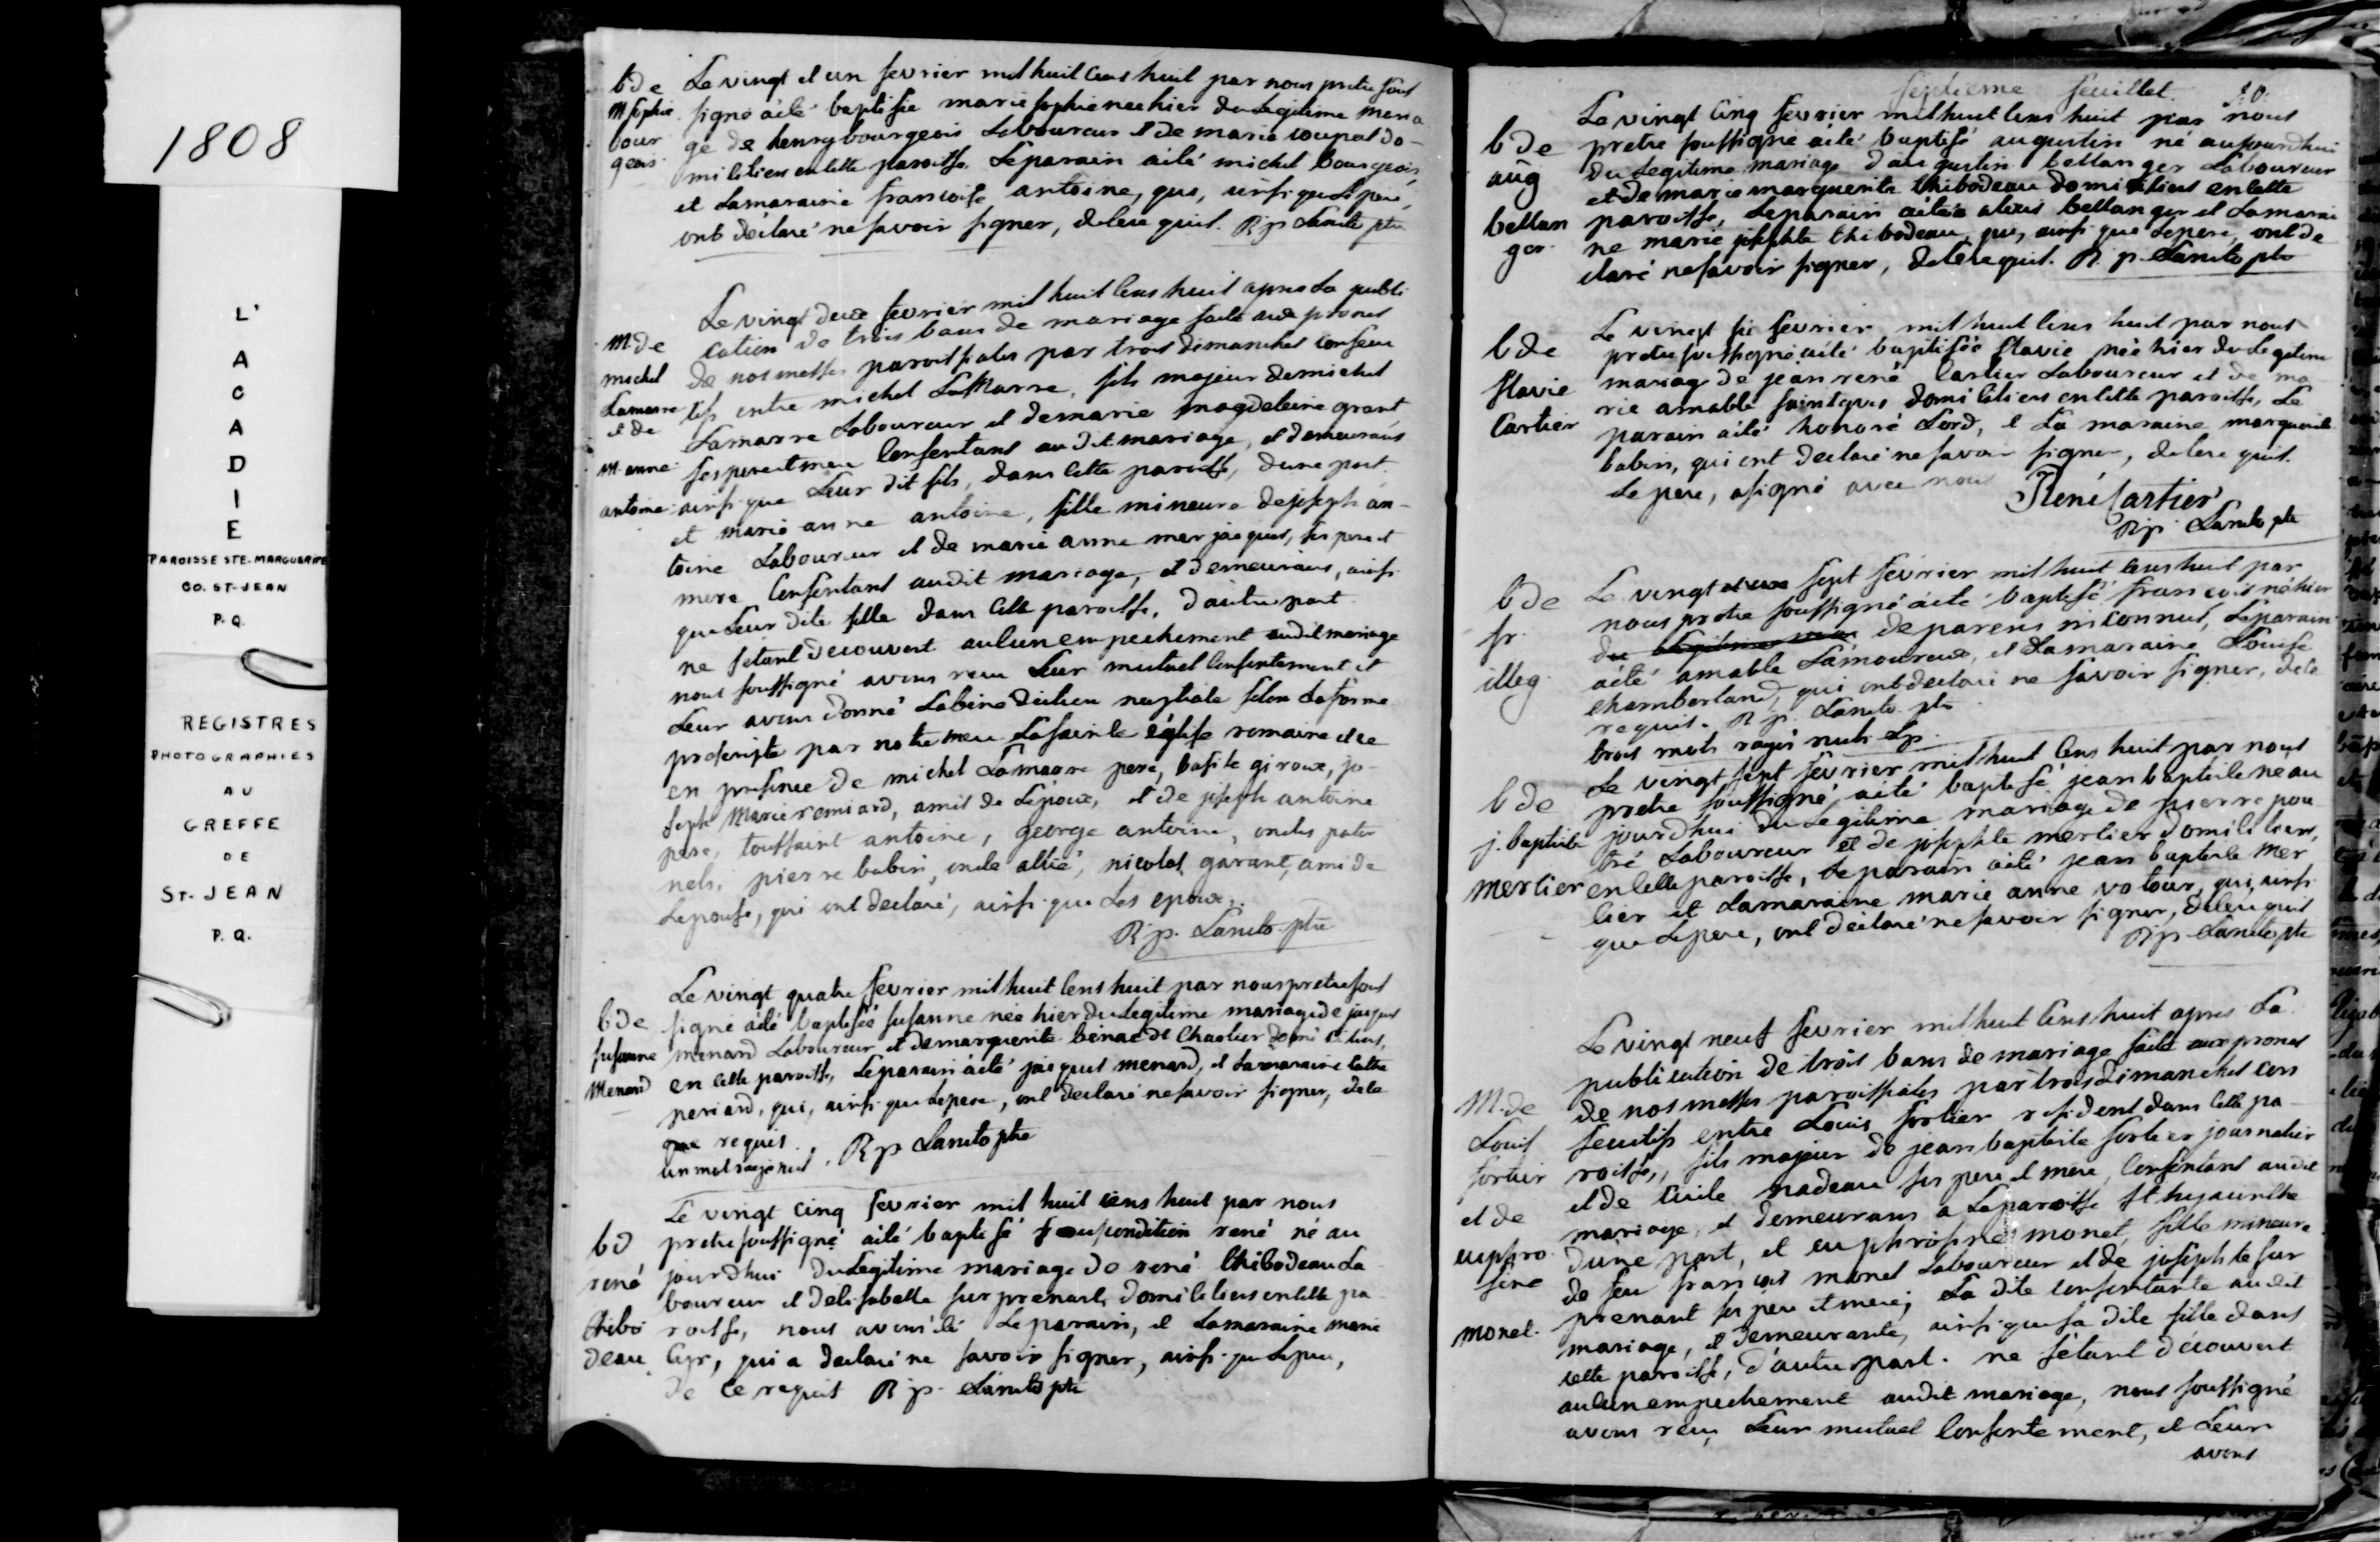 1808
L'
A
C
A
D
I
E
PAROISSE STE. MARGUERITE
CO. ST-JEAN
P. Q.
REGISTRES
PHOTOGRAPHIES
AU
GREFFE
DE
ST-JEAN
P. Q.
b de
m sophie
bour
geois
Le vingt et un fevrier mil huit cens huit par nous pretre sous
signé a été baptisée marie sophie nee hier du Legitime maria
ge de henry bourgeois Laboureur et de marie coupal do-
miciliers en cette paroisse. Le parain a été michel bourgeois
et La maraine francoise antoine, qui, ainsi que Le pere,
ont déclaré ne savoir signer, de ce requis. R p Lancto ptre
m. de
michel
Lamarre
et de
m. anne
antoine
Le vingt deux fevrier mil huit cens huit apres La publi
cation de trois bans de mariage faite aux prones
de nos messes paroissiales par trois dimanches consecu
tifs entre michel LaMarre, fils majeur de michel
Lamarre Laboureur et de marie magdeleine grant
ses pere et mere Consentans au dit mariage, et demeurans
ainsi que Leur dit fils, dans cette paroisse, dune part.
et marie anne antoine, fille mineure de joseph an-
toine Laboureur et de marie anne mer jacques, ses pere et
mere Consentans audit mariage, et demeurans, ainsi
que Leur dite fille dans Cette paroisse, d'autre part
ne setant decouvert aucun empechement audit mariage
nous soussigné avons recu Leur mutuel Consentement et
Leur avons donné La bénédiction nuptiale selon La forme
prescripte par notre mere La sainte église romaine et ce
en presence de michel Lamarre pere, basile giroux, jo-
seph Marie remiard, amis de Lepoux, et de joseph antoine
pere, toussaint antoine, george antoine, oncles pater
nels, pierre babin, oncle allié, nicolas garant, ami de
Lepouse, qui ont declaré, ainsi que Les epoux,.
R. p. Lancto ptre
b de
susanne
menard
Le vingt quatre fevrier mil huit cens huit par nous pretre sous
signé a été baptisée susanne née hier du Legitime mariage de jacques
menard Laboureur et de marguerite benac de Charlier domiciliers,
en cette paroisse, Le parain a été jacques menard, et La maraine
periard, qui, ainsi que Le pere, ont declaré ne savoir signer, de ce
requis.
un mot rayé nul. R p Lancto ptre
b d
rené
thibo
deau
Le vingt cinq fevrier mil huit cens huit par nous
pretre soussigné a été baptisé sous condition rené né au
jourdhui du Legitime mariage de rené thibodeau La
boureur et delisabette surprenant, domiciliers en cette pa
roisse, nous avons été Le parain, et La maraine marie
Cyr, qui a declaré ne savoir signer, ainsi que Le pere,
de ce requis R p. Lancto ptre
septieme feuillet. 10.
b de
aug
bellan
ger
Le vingt Cinq fevrier mil huit cens huit par nous
pretre soussigné a été baptisé augustin né aujourdhui
du Legitime mariage daugustin bellanger Laboureur
et de marie marguerite thibodeau domiciliers en cette
paroisse, Le parain a été alexis bellanger et La marai
ne marie josephte thibodeau, qui, ainsi que Le pere, ont de
claré ne savoir signer, de ce requis. R. p. Lancto ptre
b de
flavie
Cartier
Le vingt six fevrier mil huit cens huit par nous
pretre soussigné a été baptisée flavie née hier du Legitime
mariage de jean rené Cartier Laboureur et de ma
rie amable domiciliers en cette paroisse, Le
parain a été honoré Lord, et La maraine marguerite
babin, qui ont declaré ne savoir signer, de ce quis.
Le pere, a signé avec nous René Cartier
R p. Lancto ptre
b de
fr.
illeg.
Le vingt sept fevrier mil huit cens huit par
nous pretre soussigné a été baptisé francois né hier
du legitime de parens inconnus, Le parain
a été amable Lamoureux, et La maraine Louise
chamberland, qui ont declaré ne savoir signer, de ce
requis. R p. Lancto ptre
trois mots rayés nuls Lp.
b de
j. baptiste
mercier
Le vingt sept fevrier mil huit cens huit par nous
pretre soussigné a été baptisé jean baptiste né au
jourdhui du Legitime mariage de pierre pou
tré Laboureur et de josephte mercier domiciliers,
en cette paroisse, Le parain a été jean baptiste mer
cier et La maraine marie anne vatour, qui, ainsi
que Le pere, ont déclaré ne savoir signer, de ce requis
R p Lancto ptre
M. de
Louis
fortier
et de
euphro
sine
monet.
Le vingt neuf fevrier mil huit cens huit apres La
publication de trois bans de mariage faite aux prones
de nos messes paroissiales par trois dimanches con
secutifs entre Louis fortier resident dans cette pa-
roisse, fils majeur de jean baptiste fortier journalier
et de Cicile nadeau ses pere et mere, Consentans audit
mariage, et demeurans a La paroisse st hyacinthe
d'une part, et euphrosine monet, fille mineure
de feu francois monet Laboureur et de josephte sur
prenant ses pere et mere, La dite consentante audit
mariage, et demeurante, ainsi que sa dite fille dans
cette paroisse, d'autre part. ne sétant découvert
aucun empechement audit mariage, nous soussigné
avons recu Leur mutuel Consentement, et Leur
avons